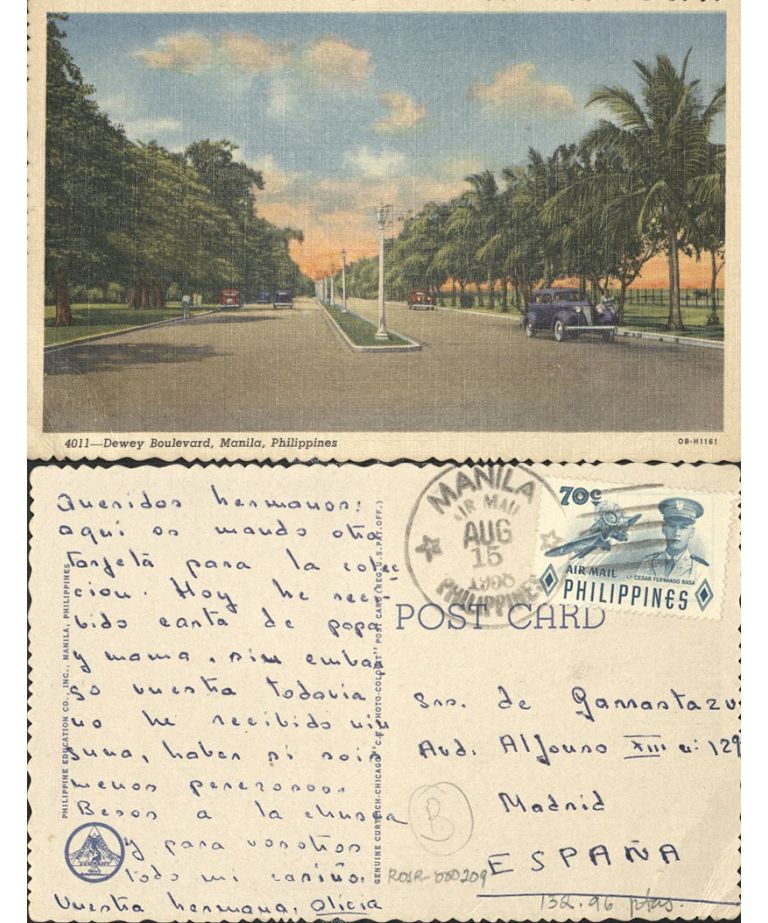 4011—Dewey Boulevard, Manila, Philippines
OB-H1161
Queridos hermanos:
aquí os mando otra
tarjeta para la colec
cion. Hoy he reci
bido carta de papa
y mama, sin embar
go vuestra todavia
no he recibido nin
guna, haber si sois
menos perezosos.
Besos a la chusma
y para vosotros
todo mi cariño.
Vuestra hermana, Alicia
PHILIPPINE EDUCATION CO., INC., MANILA, PHILIPPINES
GENUINE CURTEICH-CHICAGO "C.T. PHOTO-COLORIT" POST CARD (REG. U.S. PAT. OFF.)
MANILA
AIR MAIL
AUG
15
PHILIPPINES
70c
AIR MAIL
LT. CESAR FERNANDO BASA
PHILIPPINES
POST CARD
Srs. de Garrastazu
Avd. Alfonso XIII n: 129
Madrid
ESPAÑA
B
R01R-000209
132.96 ptas.